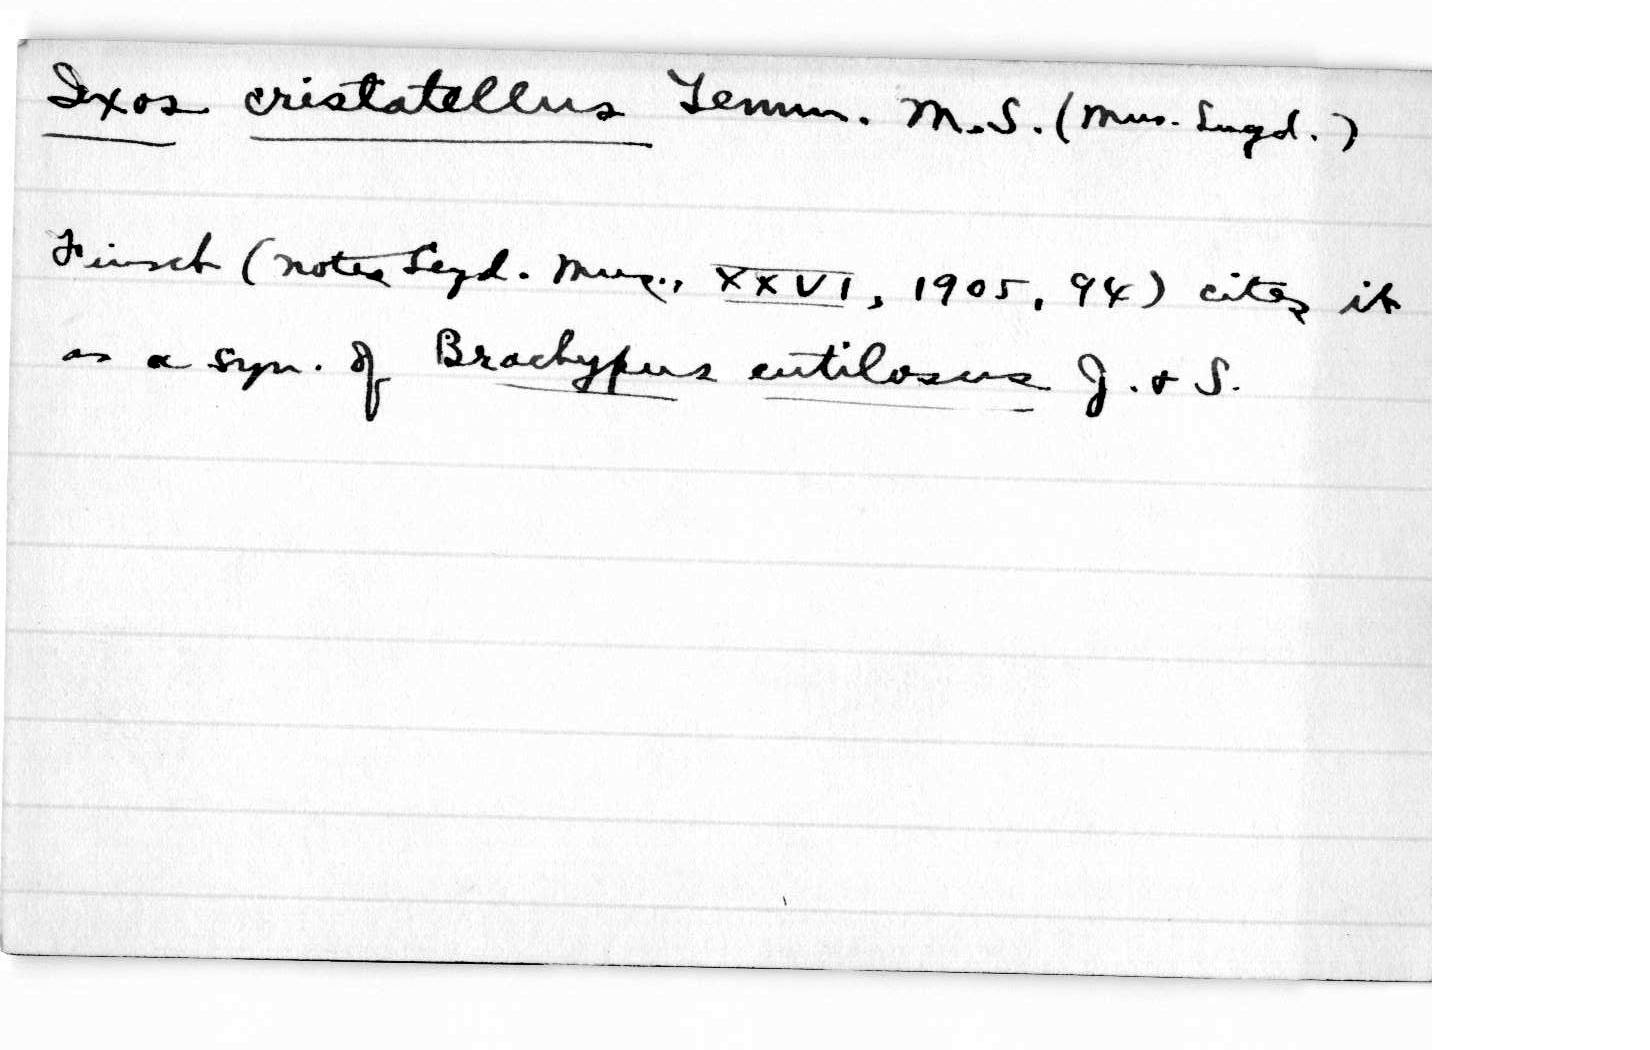 Ixos cristatellus Temm. M.S. (Mus. Lugd.)
Finsch (Notes Leyd. Mus., XXVI, 1905, 94) cites it
as a syn. of Brachypus eutilosus J. & S.